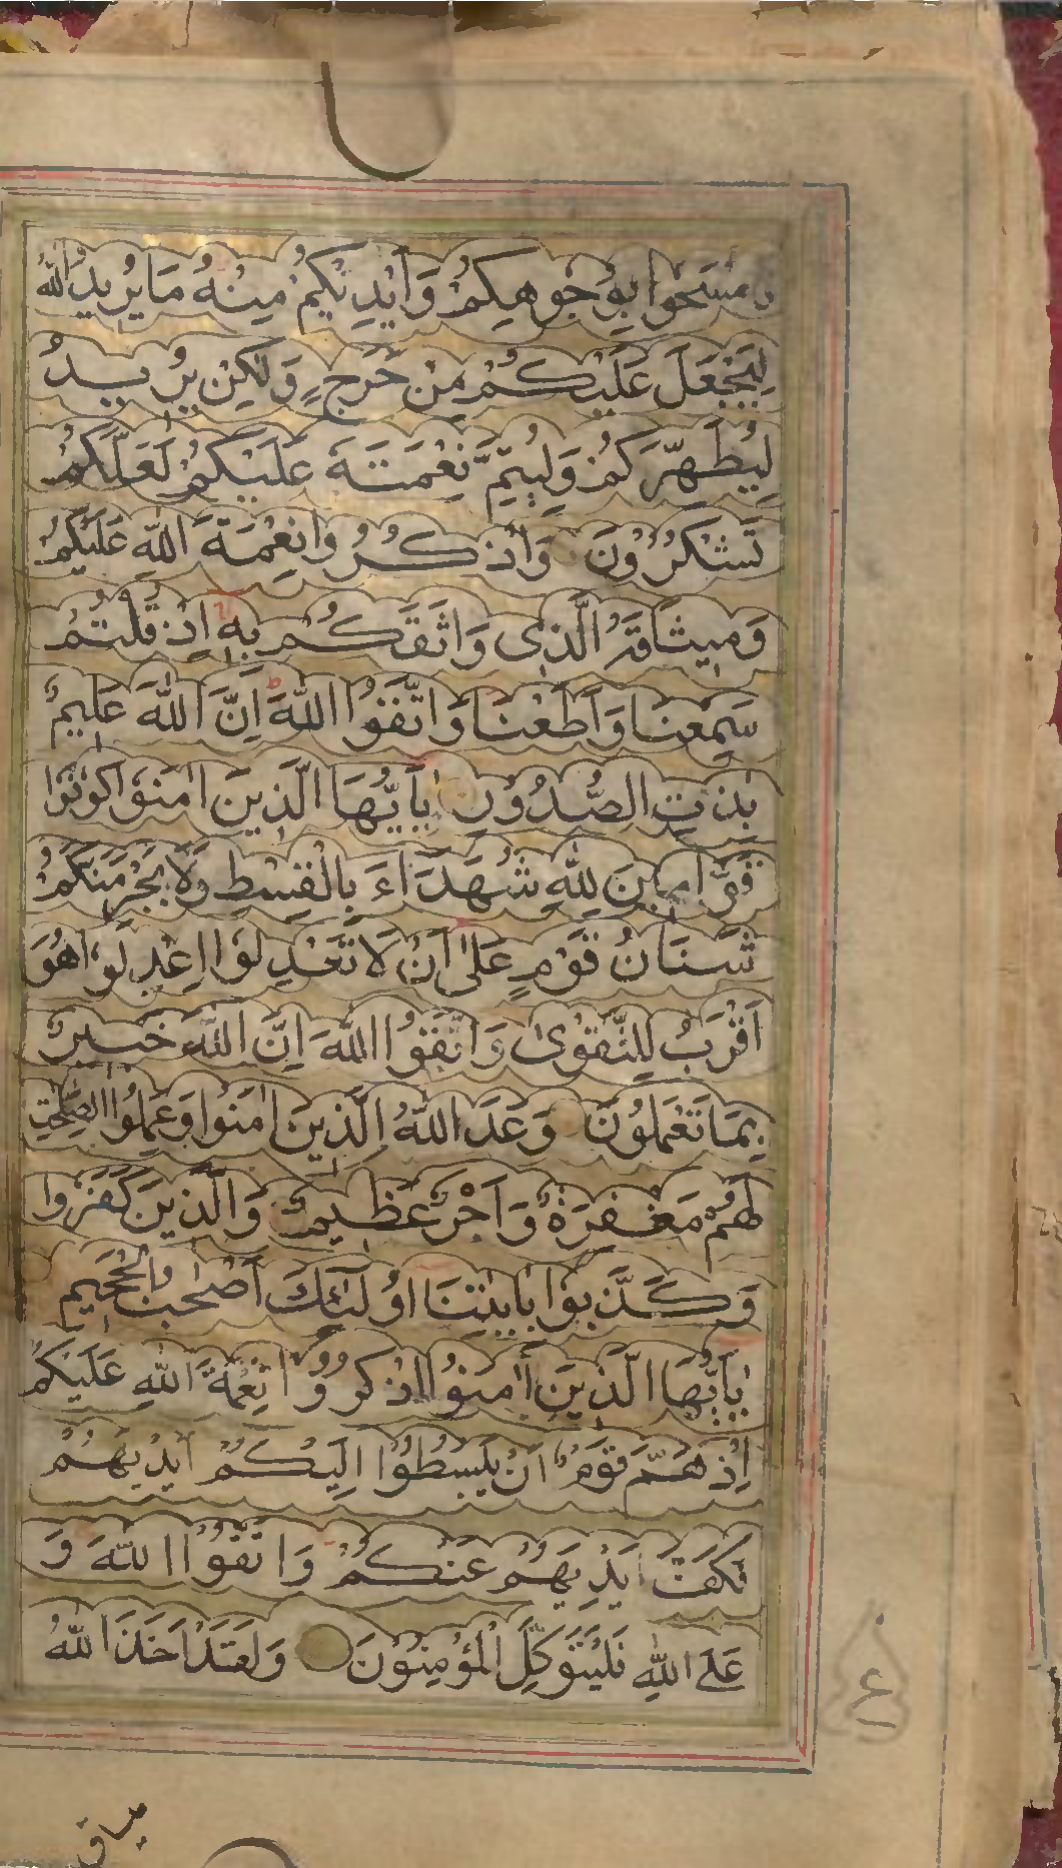 فامسحوا بوجوهكم وايديكم منه ما يريد الله
ليجعل عليكم من حرج ولكن يريد
ليطهركم وليتم نعمته عليكم لعلكم
تشكرون واذكروا نعمة الله عليكم
وميثاقه الذى واثقكم به اذ قلتم
سمعنا واطعنا واتقوا الله ان الله عليم
بذات الصدور يايها الذين امنوا كونوا
قوامين لله شهداء بالقسط ولا يجرمنكم
شنان قوم على ان لا تعدلوا اعدلوا هو
اقرب للتقوى واتقوا الله ان الله خبير
بما تعملون وعد الله الذين امنوا وعملوا الصلحت
لهم مغفرة واجر عظيم والذين كفروا
وكذبوا باياتنا اولئك اصحب الجحيم
يايها الذين امنوا اذكروا نعمة الله عليكم
اذ هم قوم ان يبسطوا اليكم ايديهم
فكف ايديهم عنكم واتقوا الله و
على الله فليتوكل المؤمنون ولقد اخذ الله
ع